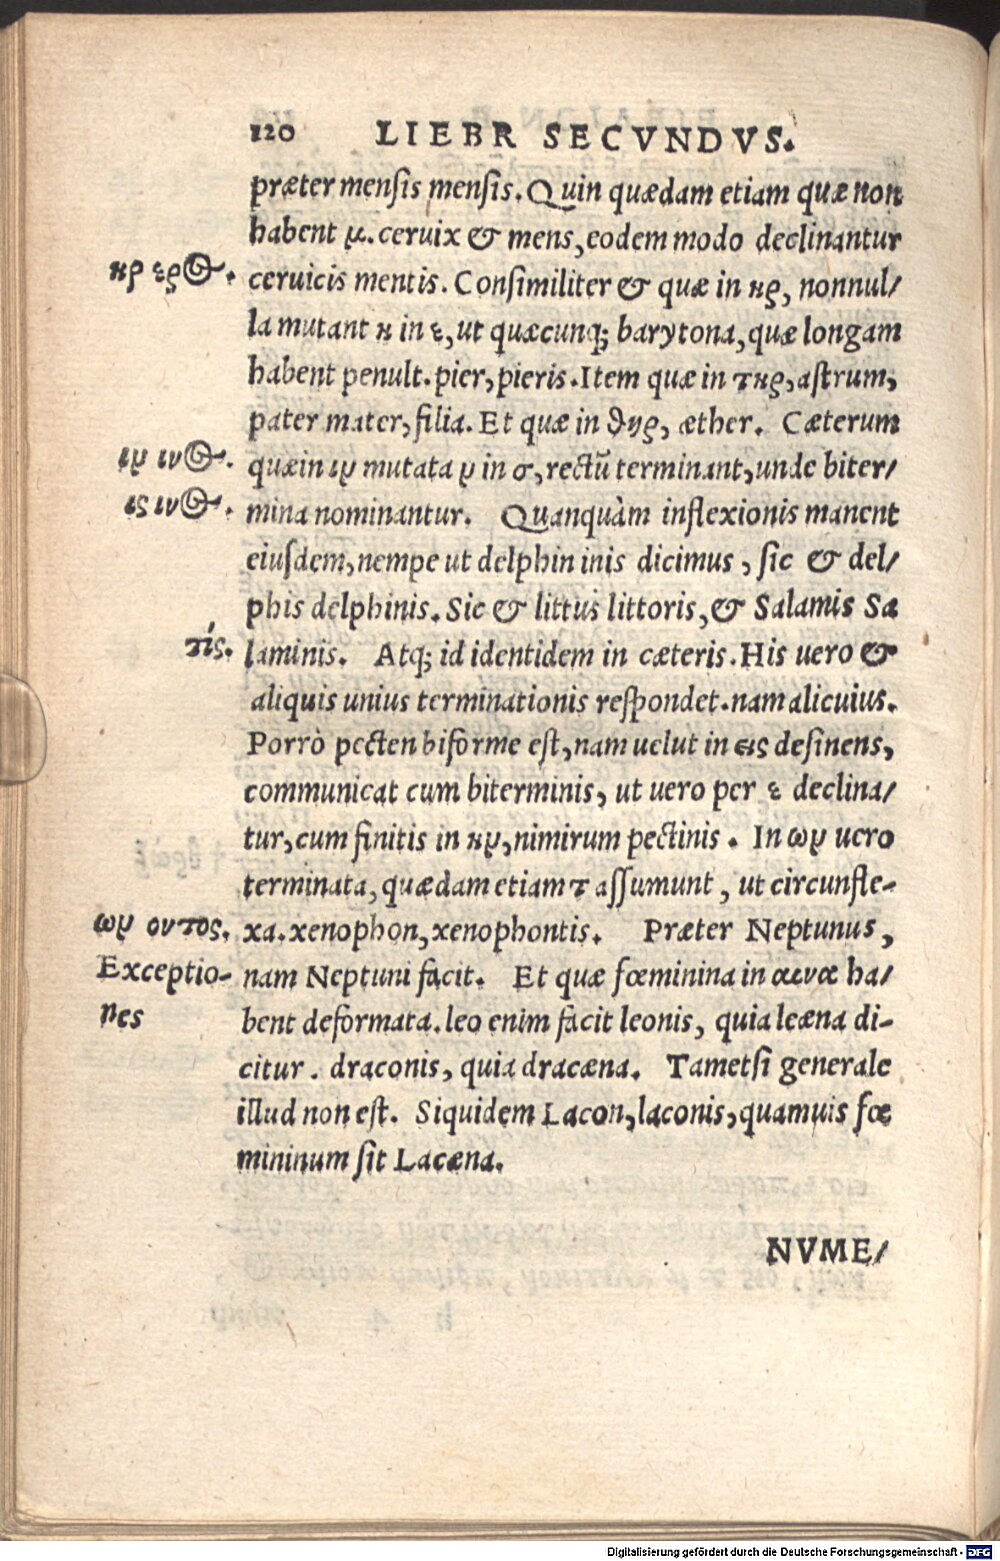 120 LIEBR SECVNDVS.
præter mensis mensis. Quin quædam etiam quæ non
habent μ. ceruix & mens, eodem modo declinantur
ηρ ερος.
ceruicis mentis. Consimiliter & quæ in ηρ, nonnul/
la mutant η in ε, ut quæcunq; barytona, quæ longam
habent penult. pier, pieris. Item quæ in τηρ, astrum,
pater mater, filia. Et quæ in θηρ, æther. Cæterum
ιν ινος.
quæ in ιν mutata ν in σ, rectū terminant, unde biter/
ις ινος.
mina nominantur. Quanquàm inflexionis manent
eiusdem, nempe ut delphin inis dicimus, sic & del/
phis delphinis. Sic & littus littoris, & Salamis Sa
τίς.
laminis. Atq; id identidem in cæteris. His uero &
aliquis unius terminationis respondet. nam alicuius.
Porrò pecten biforme est, nam uelut in εις desinens,
communicat cum biterminis, ut uero per ε declina/
tur, cum finitis in ην, nimirum pectinis. In ων uero
terminata, quædam etiam τ assumunt, ut circunfle-
ων οντος.
xa. xenophon, xenophontis. Præter Neptunus,
Exceptio-
nam Neptuni facit. Et quæ fœminina in αινα ha/
nes
bent deformata. leo enim facit leonis, quia leæna di-
citur. draconis, quia dracæna. Tametsi generale
illud non est. Siquidem Lacon, laconis, quamuis fœ
mininum sit Lacæna.
NVME/
Digitalisierung gefördert durch die Deutsche Forschungsgemeinschaft - DFG